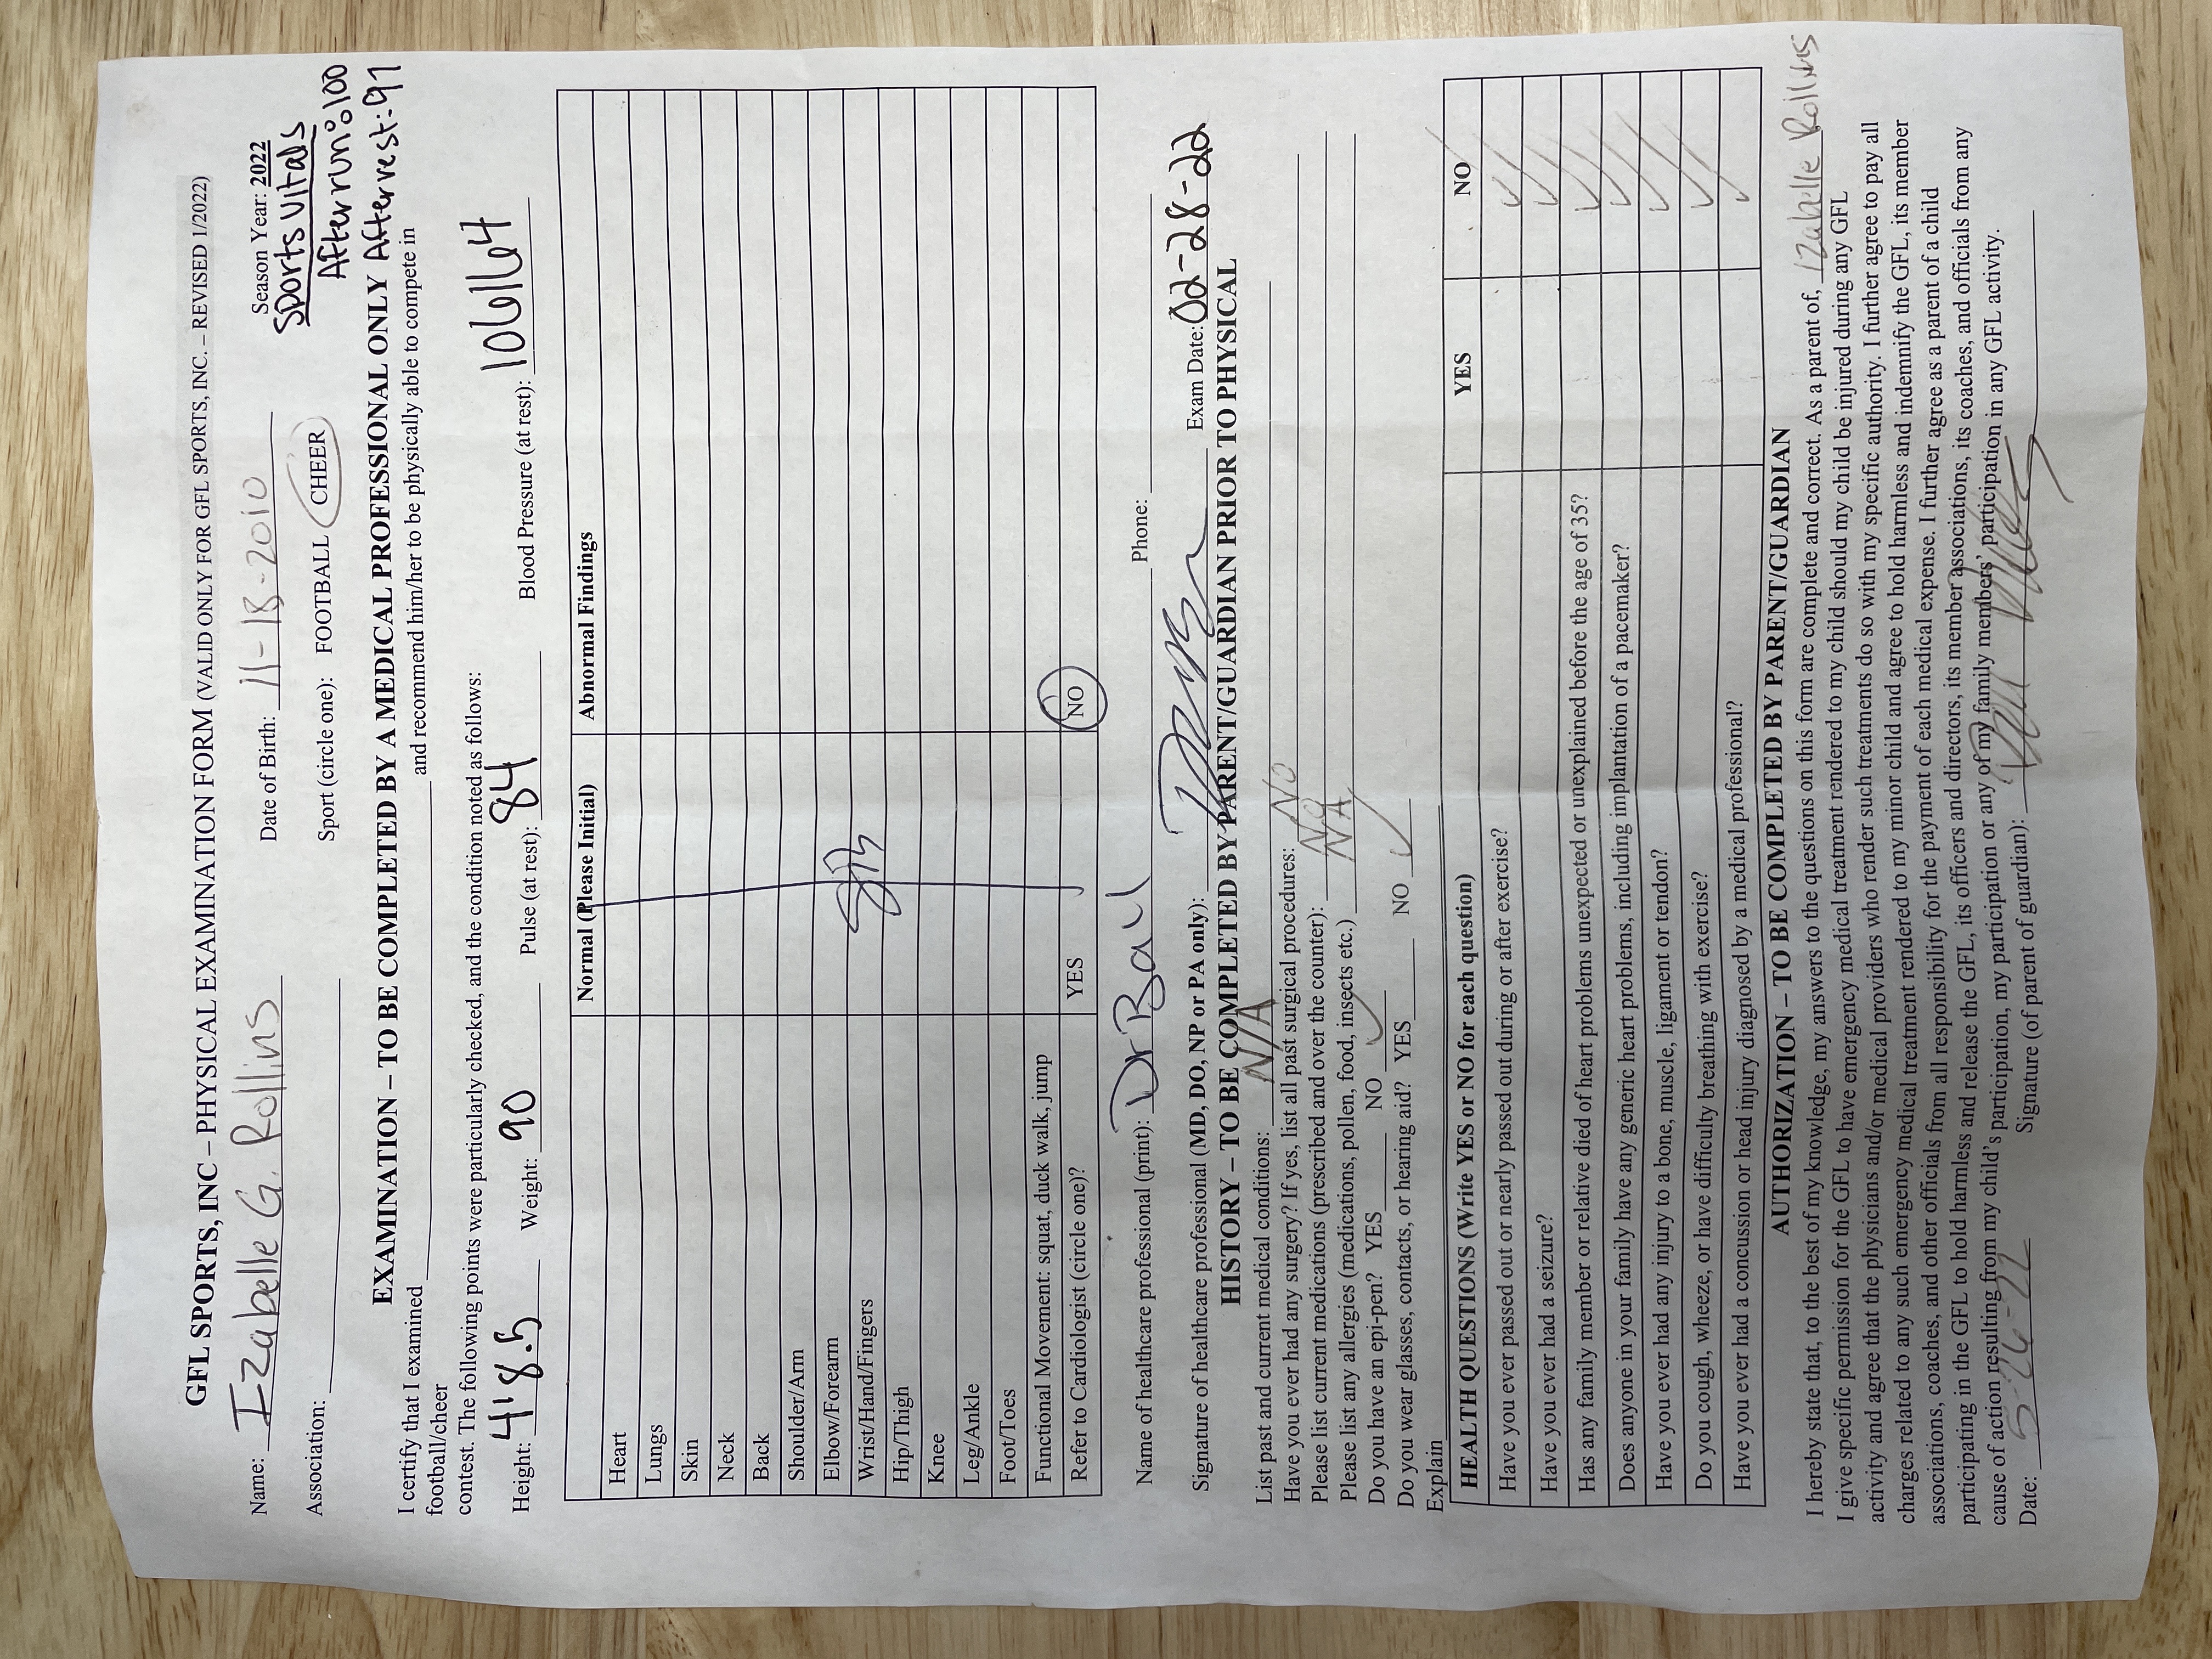 GFL SPORTS, INC – PHYSICAL EXAMINATION FORM (VALID ONLY FOR GFL SPORTS, INC. – REVISED 1/2022)
Name: Izabelle G. Rollins Date of Birth: 11-18-2010 Season Year: 2022
Sports Vitals
Association: Sport (circle one): FOOTBALL CHEER After run: 100
EXAMINATION – TO BE COMPLETED BY A MEDICAL PROFESSIONAL ONLY After rest: 91
I certify that I examined and recommend him/her to be physically able to compete in
football/cheer
contest. The following points were particularly checked, and the condition noted as follows:
Height: 4'8.5 Weight: 90 Pulse (at rest): 84 Blood Pressure (at rest): 106/64
Normal (Please Initial) Abnormal Findings
Heart
Lungs
Skin
Neck
Back
Shoulder/Arm
Elbow/Forearm
Wrist/Hand/Fingers
Hip/Thigh
Knee
Leg/Ankle
Foot/Toes
Functional Movement: squat, duck walk, jump
Refer to Cardiologist (circle one)? YES NO
Name of healthcare professional (print): Dr Ball Phone:
Signature of healthcare professional (MD, DO, NP or PA only): Exam Date: 02-28-22
HISTORY – TO BE COMPLETED BY PARENT/GUARDIAN PRIOR TO PHYSICAL
List past and current medical conditions: N/A
Have you ever had any surgery? If yes, list all past surgical procedures: NO
Please list current medications (prescribed and over the counter): NA
Please list any allergies (medications, pollen, food, insects etc.) NA
Do you have an epi-pen? YES NO ✓
Do you wear glasses, contacts, or hearing aid? YES NO ✓
Explain
HEALTH QUESTIONS (Write YES or NO for each question) YES NO
Have you ever passed out or nearly passed out during or after exercise? ✓
Have you ever had a seizure? ✓
Has any family member or relative died of heart problems unexpected or unexplained before the age of 35? ✓
Does anyone in your family have any generic heart problems, including implantation of a pacemaker? ✓
Have you ever had any injury to a bone, muscle, ligament or tendon? ✓
Do you cough, wheeze, or have difficulty breathing with exercise? ✓
Have you ever had a concussion or head injury diagnosed by a medical professional? ✓
AUTHORIZATION – TO BE COMPLETED BY PARENT/GUARDIAN
I hereby state that, to the best of my knowledge, my answers to the questions on this form are complete and correct. As a parent of, Izabelle Rollins
I give specific permission for the GFL to have emergency medical treatment rendered to my child should my child be injured during any GFL
activity and agree that the physicians and/or medical providers who render such treatments do so with my specific authority. I further agree to pay all
charges related to any such emergency medical treatment rendered to my minor child and agree to hold harmless and indemnify the GFL, its member
associations, coaches, and other officials from all responsibility for the payment of each medical expense. I further agree as a parent of a child
participating in the GFL to hold harmless and release the GFL, its officers and directors, its member associations, its coaches, and officials from any
cause of action resulting from my child's participation, my participation or any of my family members' participation in any GFL activity.
Date: 5-26-22 Signature (of parent of guardian):